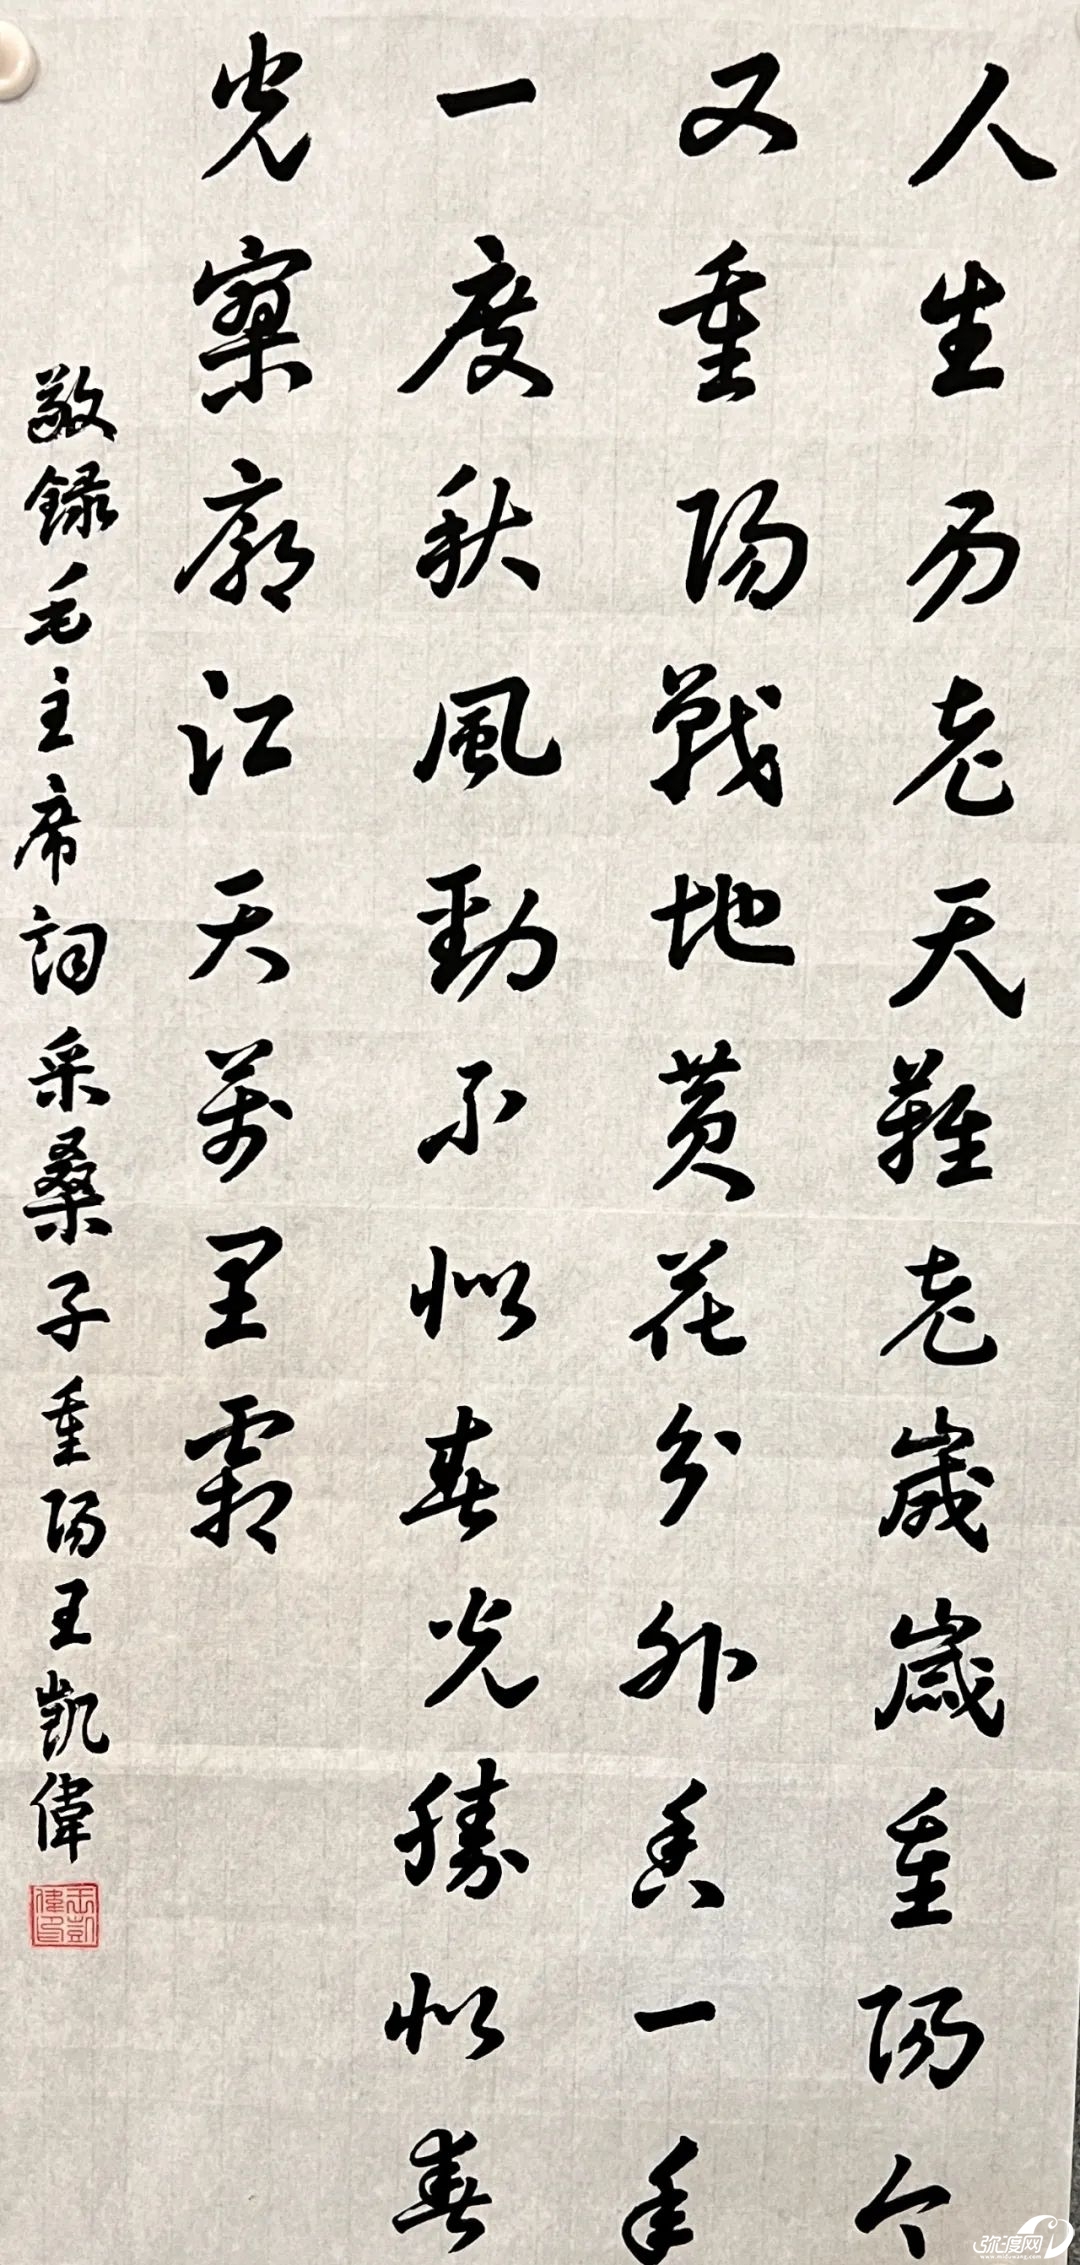 人生易老天難老歲歲重陽今
又重陽戰地黃花分外香一年
一度秋風勁不似春光勝似春
光寥廓江天萬里霜
敬錄毛主席詞采桑子重陽王凱偉
王凱偉印
弥渡网
www.miduwang.com